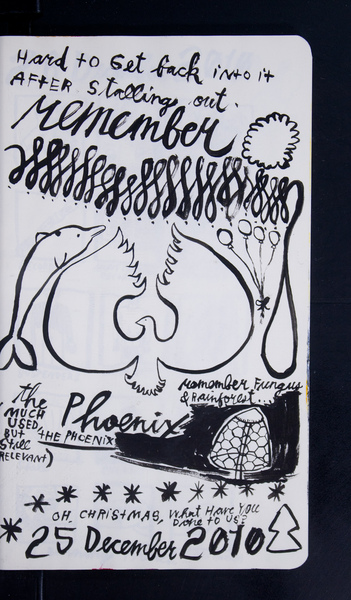 Hard to Get back into it
AFTER Stalling out.
remember
remember Fungus
& Rainforest...
the
(MUCH
USED,
BUT
Still
RELEVANT)
Phoenix
THE PHOENIX
OH, CHRISTMAS, What Have You
Done to US?
25 December 2010